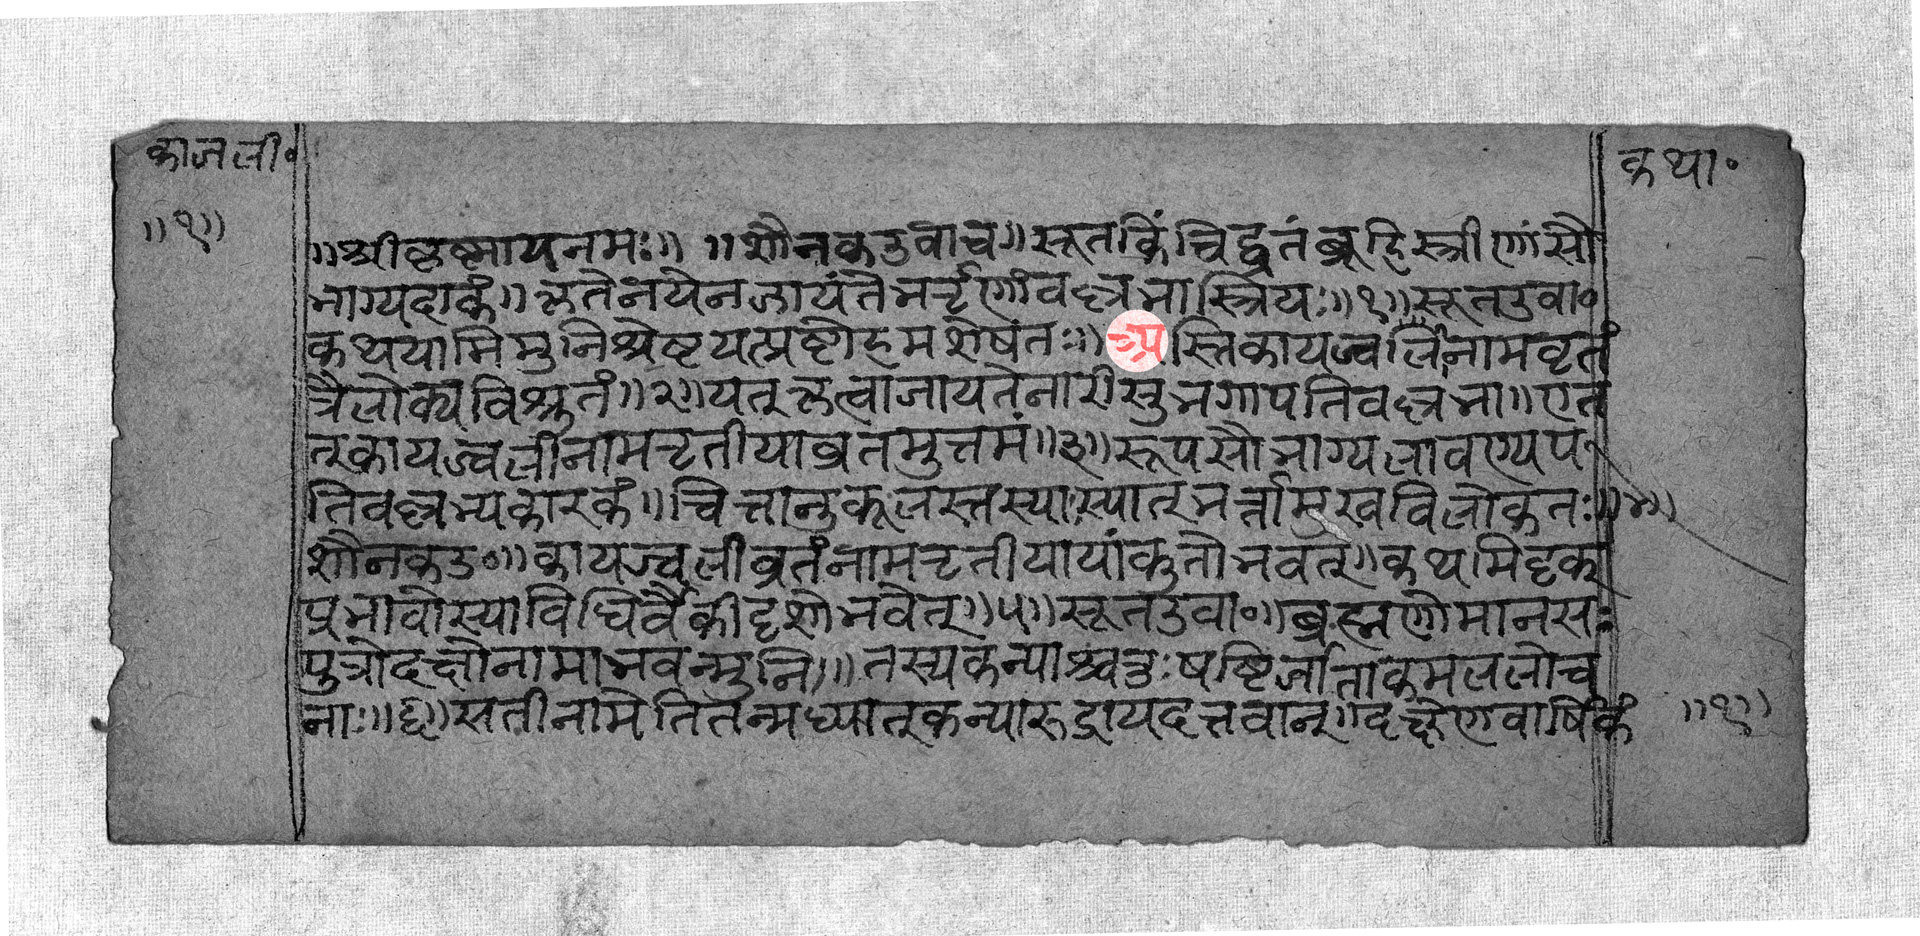 काजली॰
कथा॰
॥१॥
॥श्रीकृष्णायनमः॥ ॥शौनकउवाच॥सूतकिंचिद्व्रतंब्रूहिस्त्रीणांसौ
भाग्यदायकं॥कृतेनयेनजायंतेभर्तृणांवल्लभास्त्रियः॥१॥सूतउवा॰
कथयामिमुनिश्रेष्टयत्पृष्टोहमशेषंतः॥अस्तिकायज्वलिंनामवृतं
त्रैलोक्यविश्रुतं॥२॥यत्कृत्वाजायतेनारीसुभगापतिवल्लभा॥एत
त्कायज्वलीनामतृतीयाव्रतमुत्तमं॥३॥रूपसौभाग्यलावण्यप
तिवल्लभ्यकारकं॥चित्तानुकूलस्तस्याःस्यात्भर्त्तामुखविलोकतः॥४॥
शौनकउ॰॥कायज्वलीव्रतंनामतृतीयायांकुतोभवत्॥कथमिदृक्
प्रभावोस्याविधिर्वैकीदृशोभवेत्॥५॥सूतउवा॰॥ब्रह्मणोमानसः
पुत्रोदक्षोनामाभवन्मुनि॥तस्यकन्याश्चतुःषष्टिर्जाताकमललोच
नाः॥६॥सतीनामेतितन्मध्यात्कन्यारुद्रायदत्तवान्॥दक्षेणवार्षिकं
॥१॥